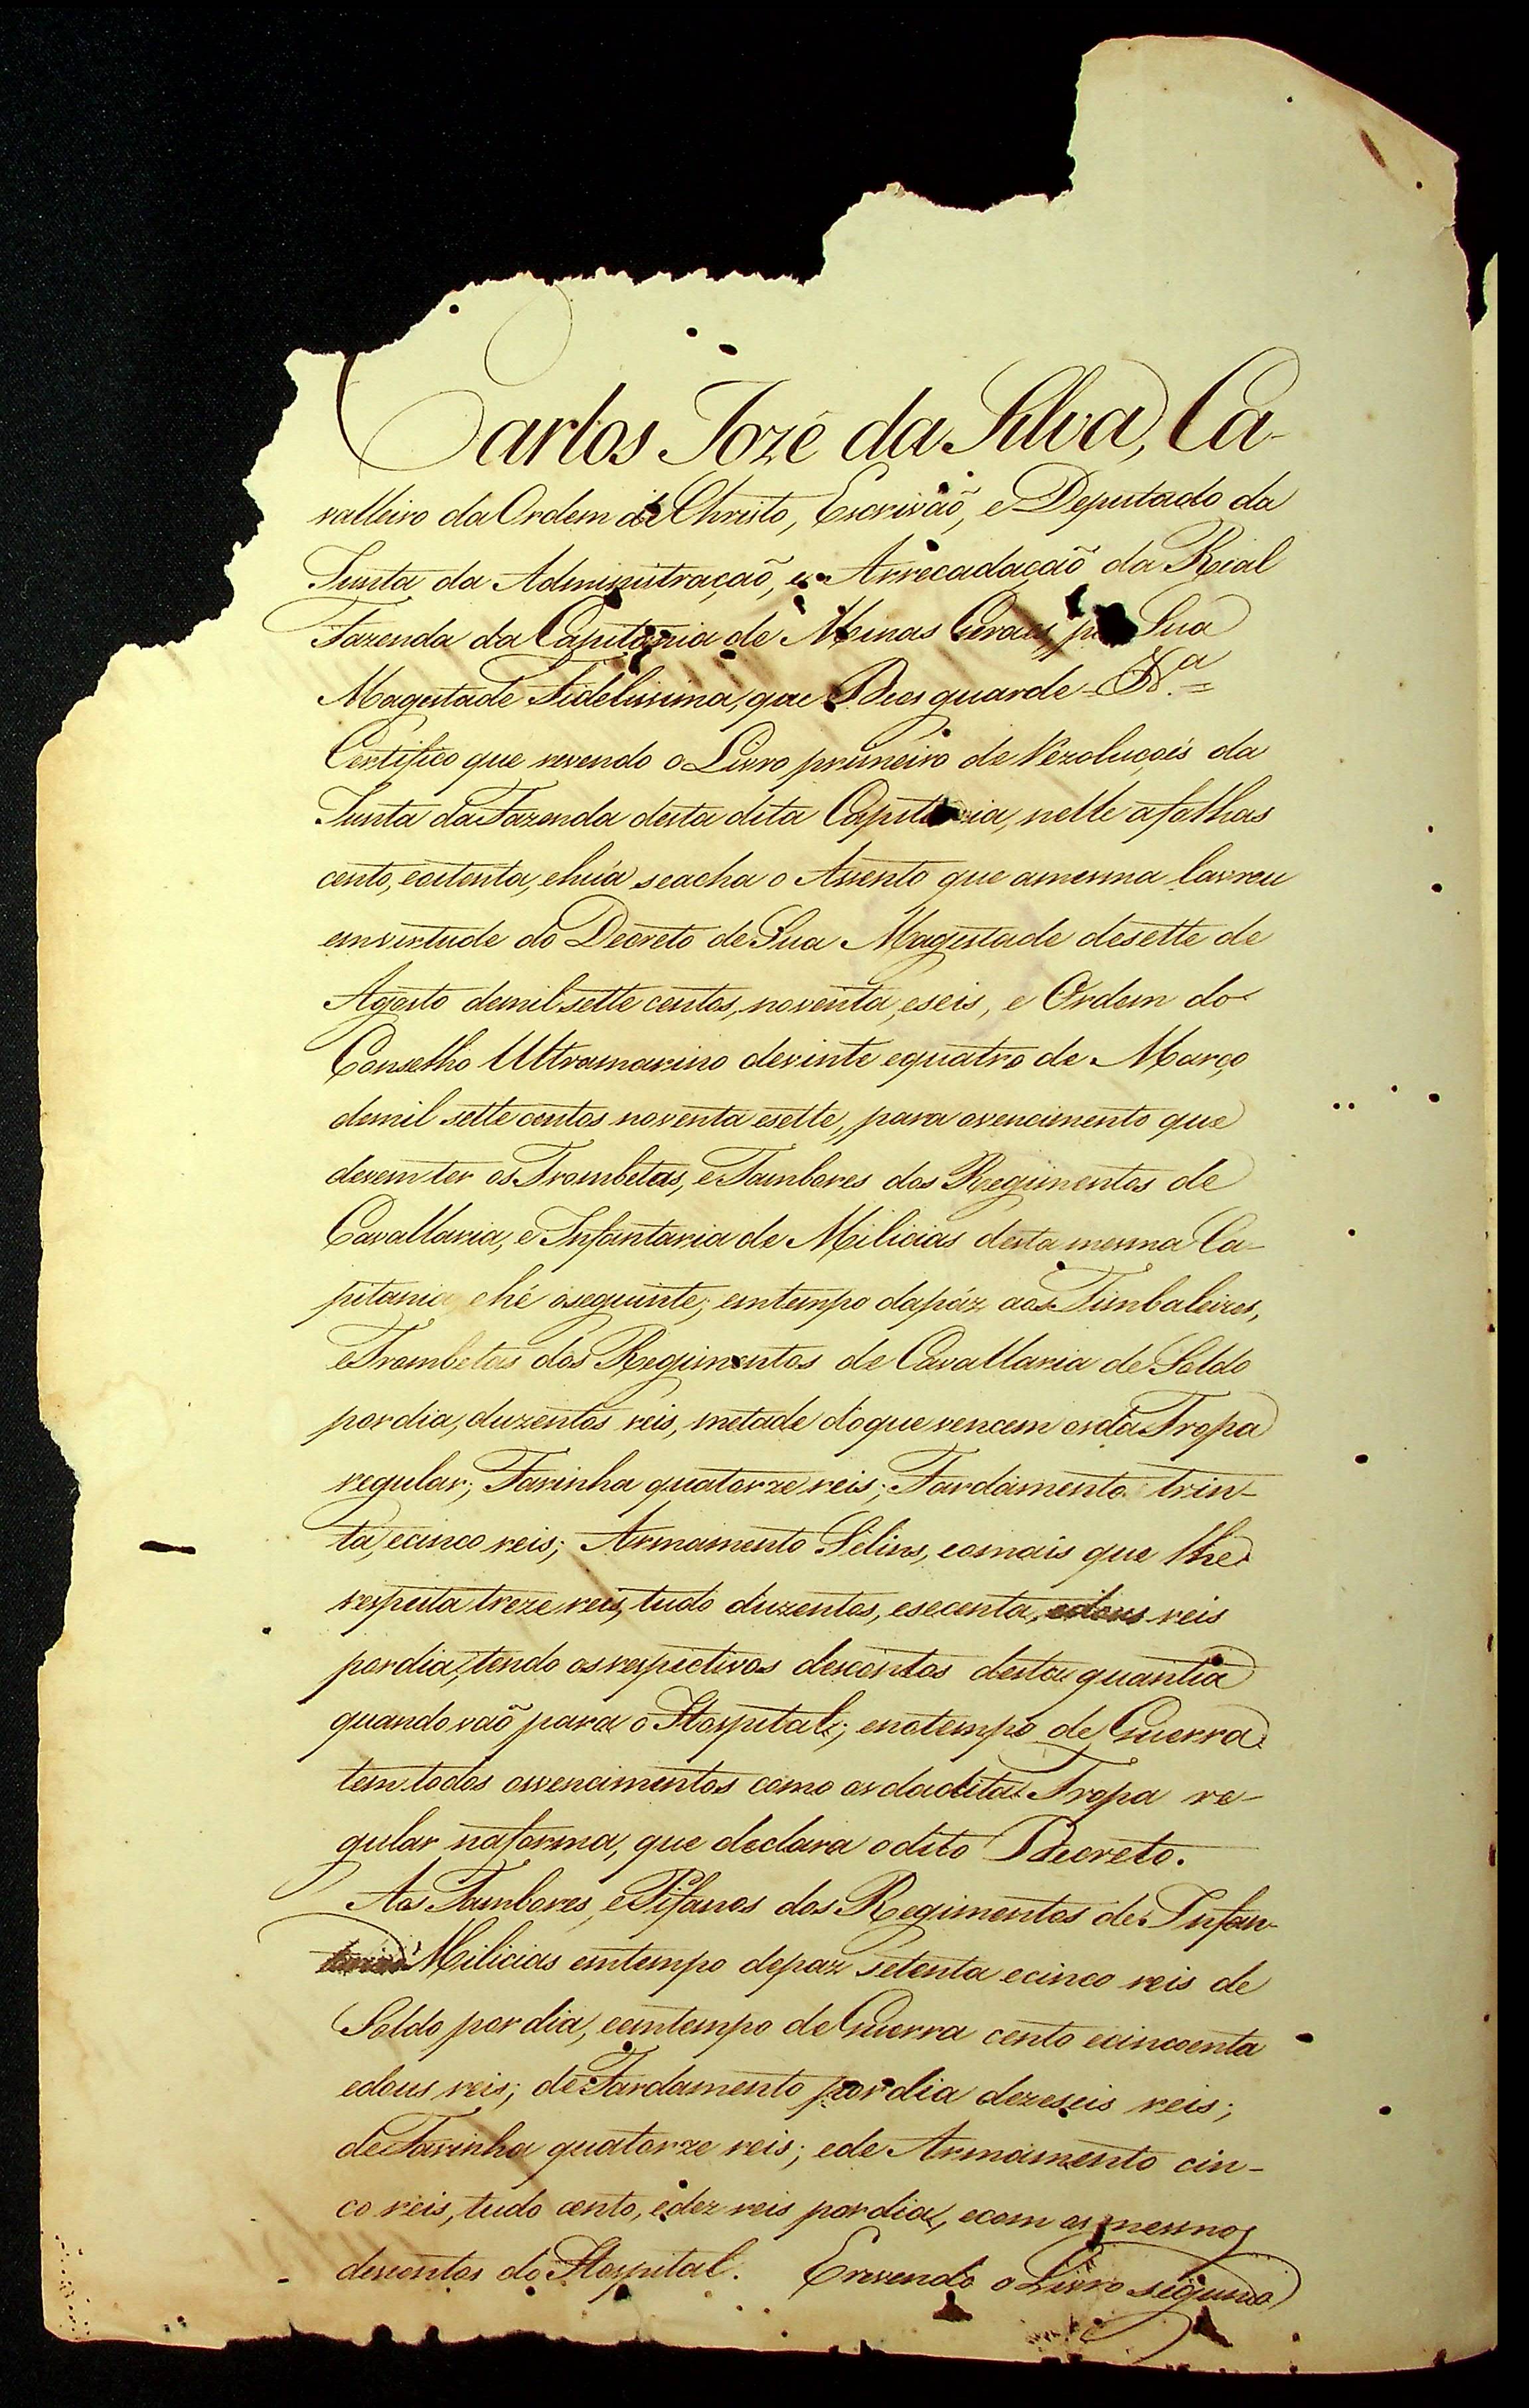 Carlos Jozé da Silva, Ca-
valleiro da Ordem de Christo, Escrivaõ, e Deputado da
Junta da Administraçaõ, e Arrecadaçaõ da Real
Fazenda da Capitania de Minas Geraes, por Sua
Magestade Fidelissima, que Deos guarde &.ª =
Certifico que revendo o Livro primeiro de Rezoluçoẽs da
Junta da Fazenda desta dita Capitania, nelle afolhas
cento, eoitenta, ehuã seacha o Assento que amesma lavrou
emvirtude do Decreto de Sua Magestade desette de
Agosto demil sette centos, noventa, eseis, e Ordem do
Conselho Ultramarino devinte equatro de Março
demil sette centos noventa esette, para ovencimento que
devem ter os Trombetas, eTambores dos Regimentos de
Cavallaria, e Infantaria de Milicias desta mesma Ca-
pitania ehé oseguinte; emtempo dapáz aos Timbaleires,
eTrombetas dos Regimentos de Cavallaria de Soldo
pordia, duzentos reis, metade doque vencem osda Tropa
regular; Farinha quatorze reis; Fardamento trin-
ta, ecinco reis; Armamento Selins, eomais que lhe
respeita treze reis, tudo duzentos, esecenta, edous reis
pordia, tendo osrespectivos descontos desta quantia
quando vaõ para o Hospital; enotempo de Guerra
tem todos osvencimentos como osdadita Tropa re-
gular naforma, que declara odito Decreto.
Aos Tambores, ePifanos dos Regimentos de Infan-
taria Milicias emtempo depaz setenta ecinco reis de
Soldo por dia, eemtempo de Guerra cento ecincoenta
edous reis; de Fardamento por dia dezeseis reis;
de Farinha quatorze reis; ede Armamento cin-
co reis, tudo cento, edez reis pordia, ecom os mesmos
descontos do Hospital. Erevendo o Livro segundo